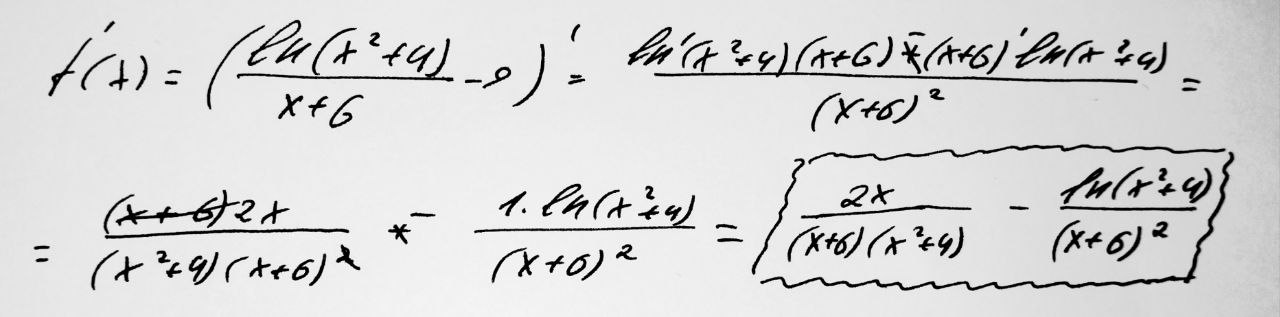 f'(x) = (ln(x²+4)/(x+6) - 9)' = (ln'(x²+4)(x+6) - (x+6)'ln(x²+4))/(x+6)² =
= 2x/((x²+4)(x+6)) - 1·ln(x²+4)/(x+6)² = 2x/((x+6)(x²+4)) - ln(x²+4)/(x+6)²